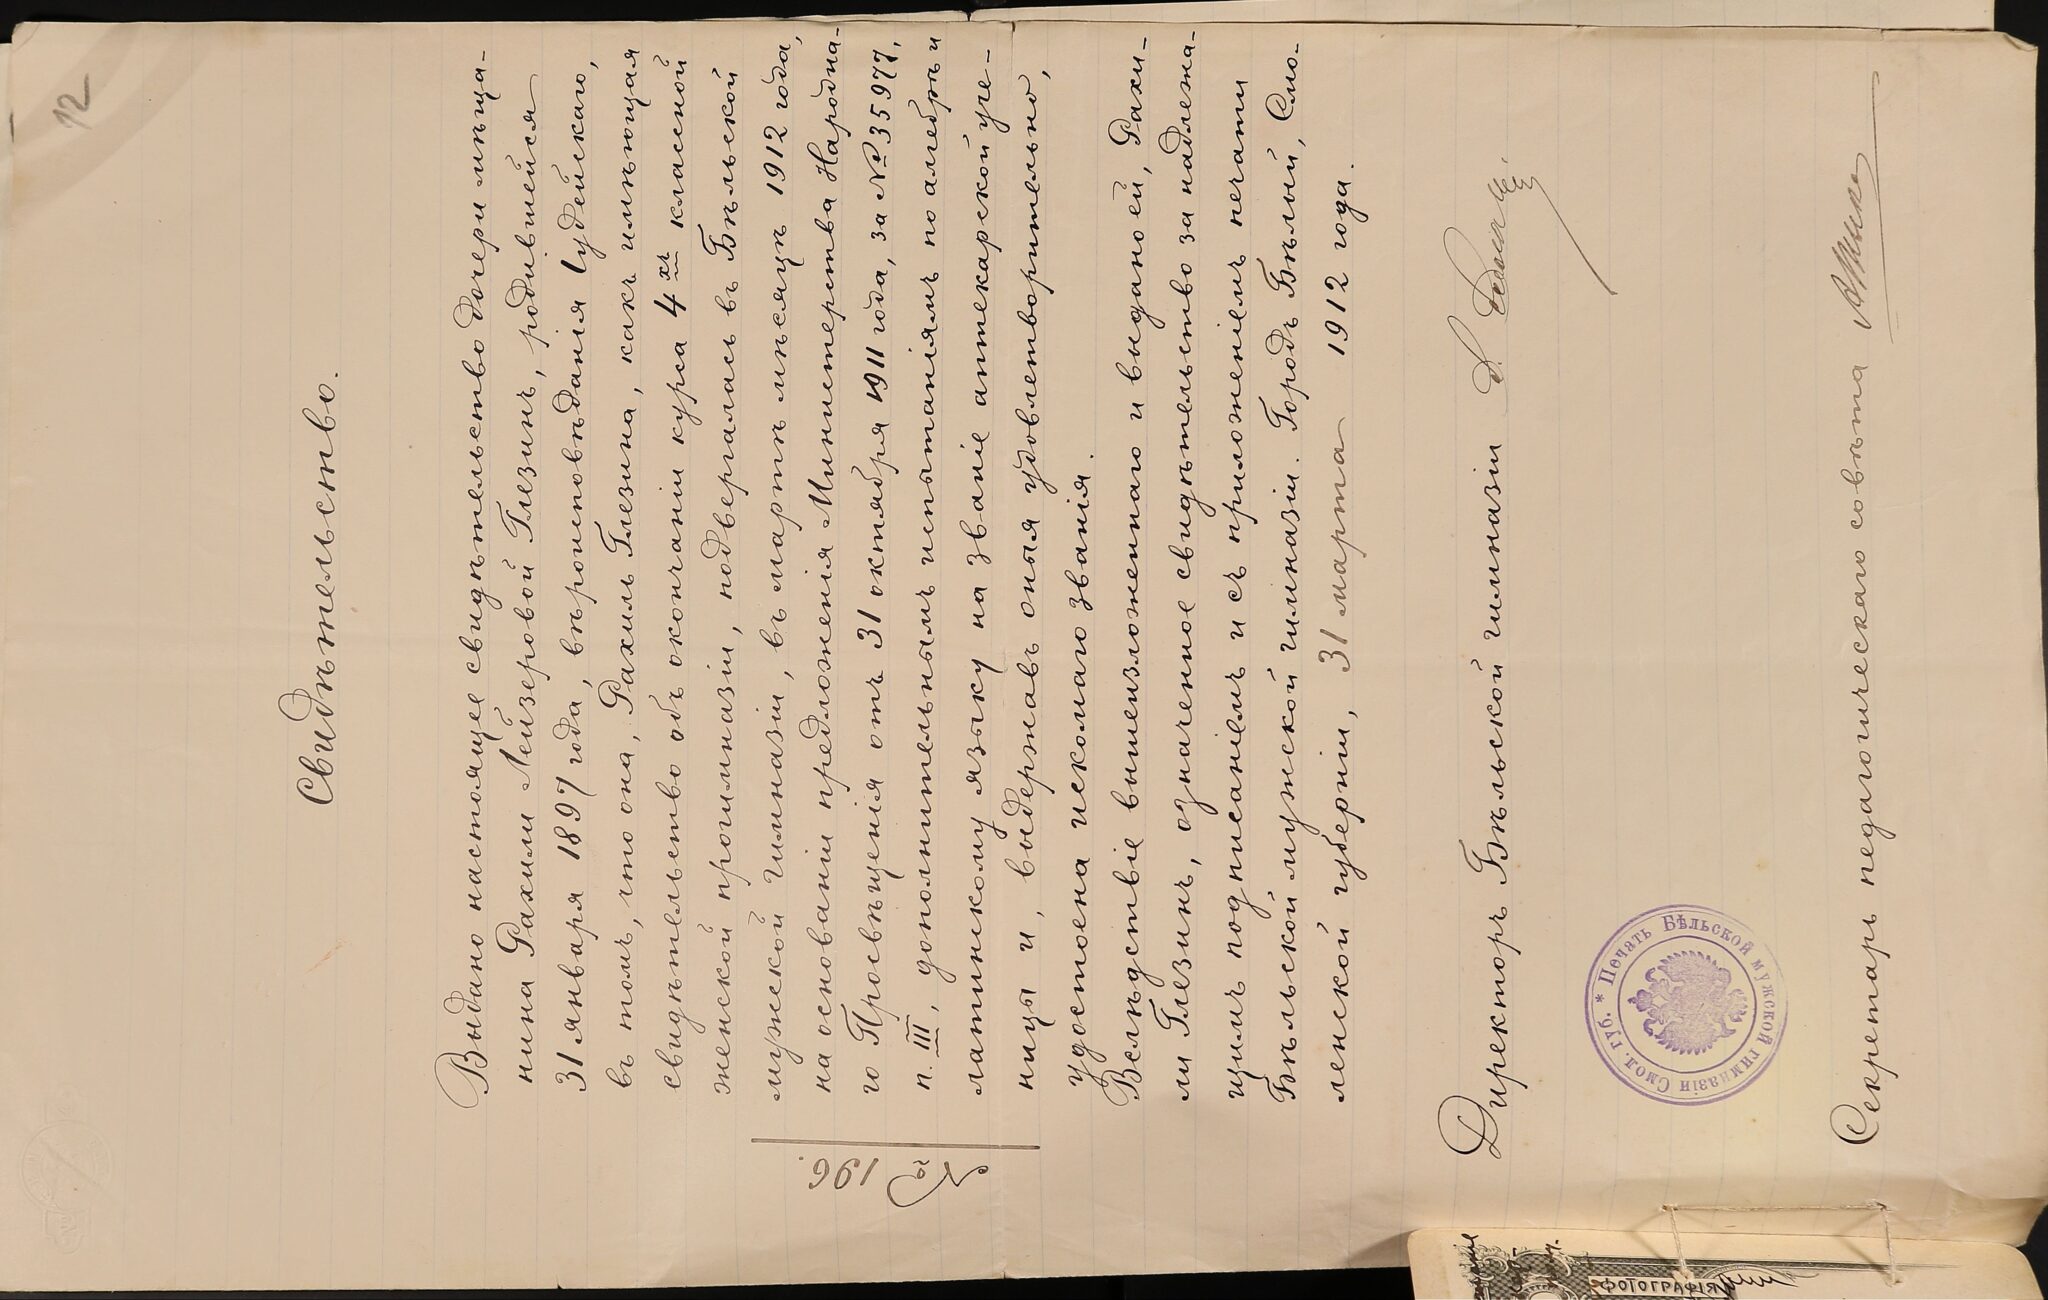 12
Свидѣтельство.
Выдано настоящее свидѣтельство дочери мѣща-
нина Рахили Лейзеровой Глезинъ, родившейся
31 января 1897 года, вѣроисповѣданія Іудейскаго,
въ томъ, что она, Рахиль Глезина, какъ имѣющая
свидѣтельство объ окончаніи курса 4хъ классной
женской прогимназіи, подвергалась въ Бѣльской
мужской гимназіи, въ мартѣ мѣсяцѣ 1912 года,
на основаніи предложенія Министерства Народна-
го Просвѣщенія отъ 31 октября 1911 года, за № 35977,
п. III, дополнительнымъ испытаніямъ по алгебрѣ и
латинскому языку на званіе аптекарской уче-
ницы и, выдержавъ оныя удовлетворительно,
удостоена искомаго званія.
Вслѣдствіе вышеизложеннаго и выдано ей, Рахи-
ли Глезинъ, означенное свидѣтельство за надлежа-
щимъ подписаніемъ и съ приложеніемъ печати
Бѣльской мужской гимназіи. Городъ Бѣлый, Смо-
ленской губерніи, 31 марта 1912 года.
№ 196.
Директоръ Бѣльской гимназіи
* Печать Бѣльской мужской гимназіи Смол. губ.
Секретарь педагогическаго совѣта
ФОТОГРАФІЯ